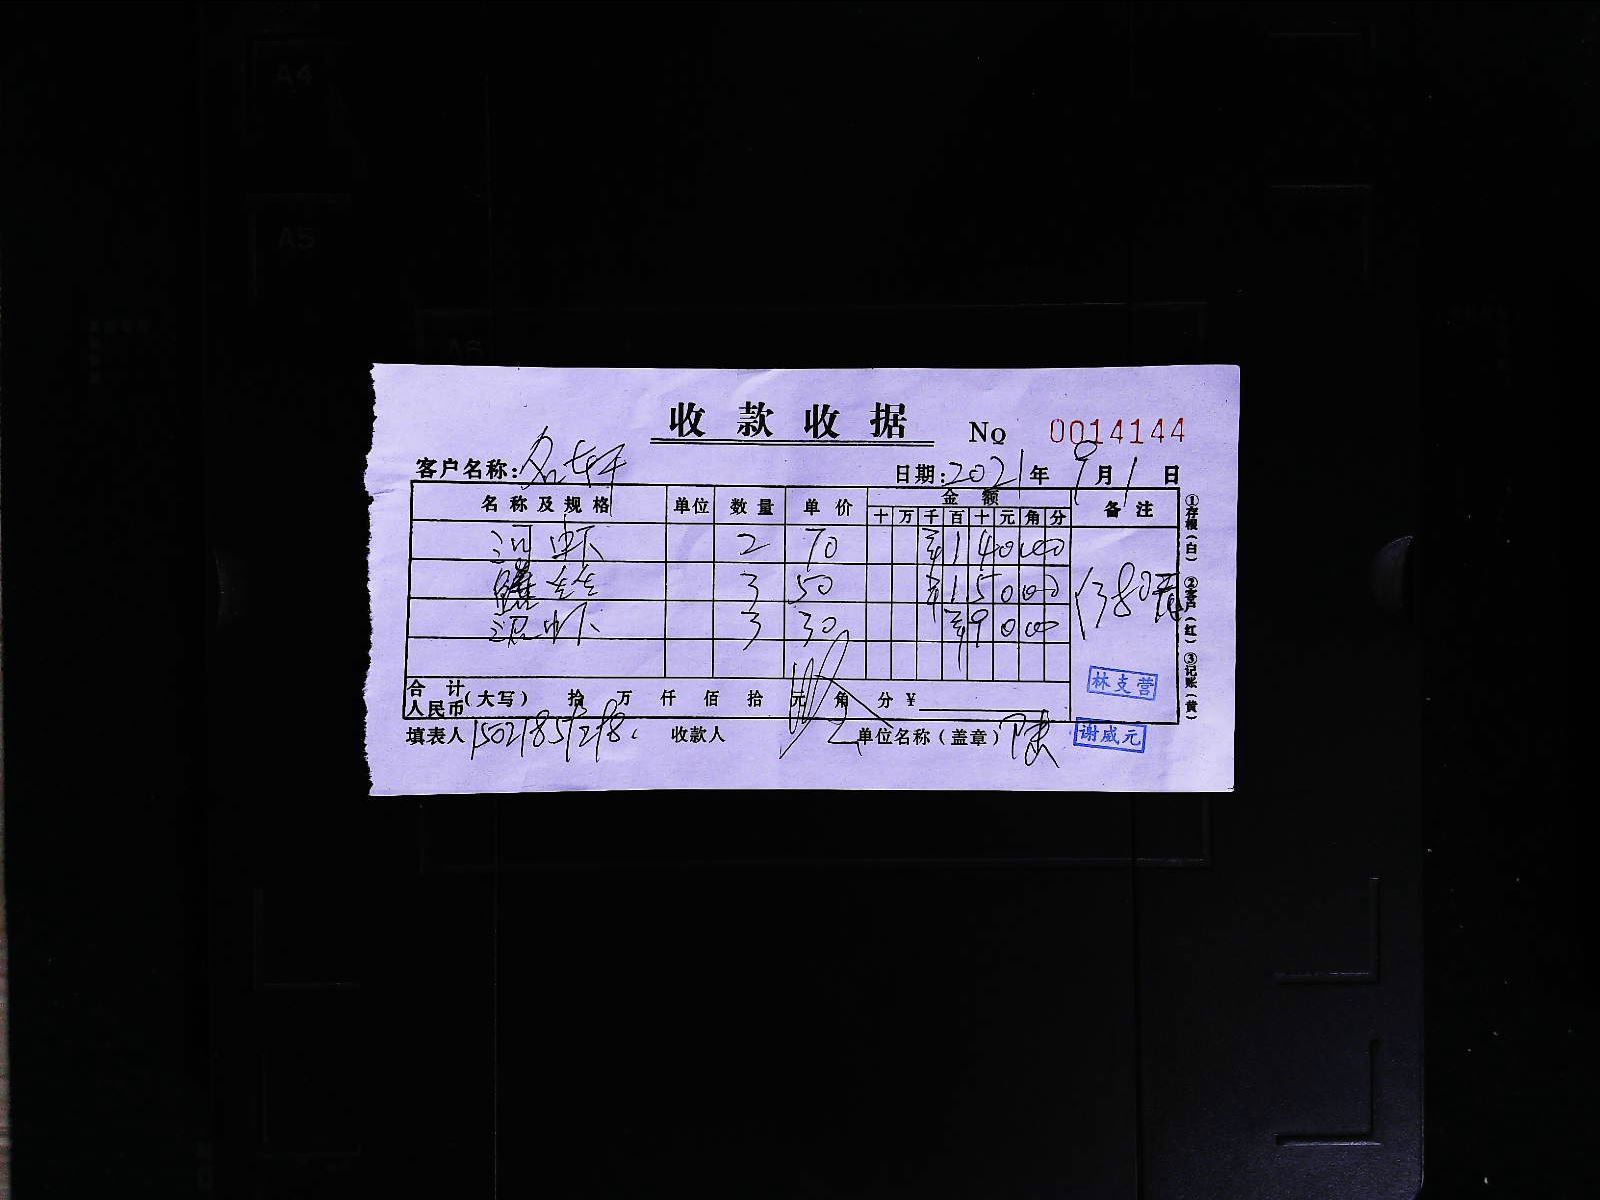 收款收据
No 0014144
客户名称:名轩
日期:2021年9月1日
名称及规格 单位 数量 单价 金额 备注
十 万 千 百 十 元 角 分
河虾 2 70 ¥ 1 4 0 0 0
3 50 ¥ 1 5 0 0 0
沼虾 3 30 ¥ 9 0 0 0
林支营
合计人民币(大写) 拾 万 仟 佰 拾 元 角 分 ¥
填表人 15021857218. 收款人 单位名称(盖章) 陆
谢威元
①存根(白) ②客户(红) ③记账(黄)
A4
A5
A6